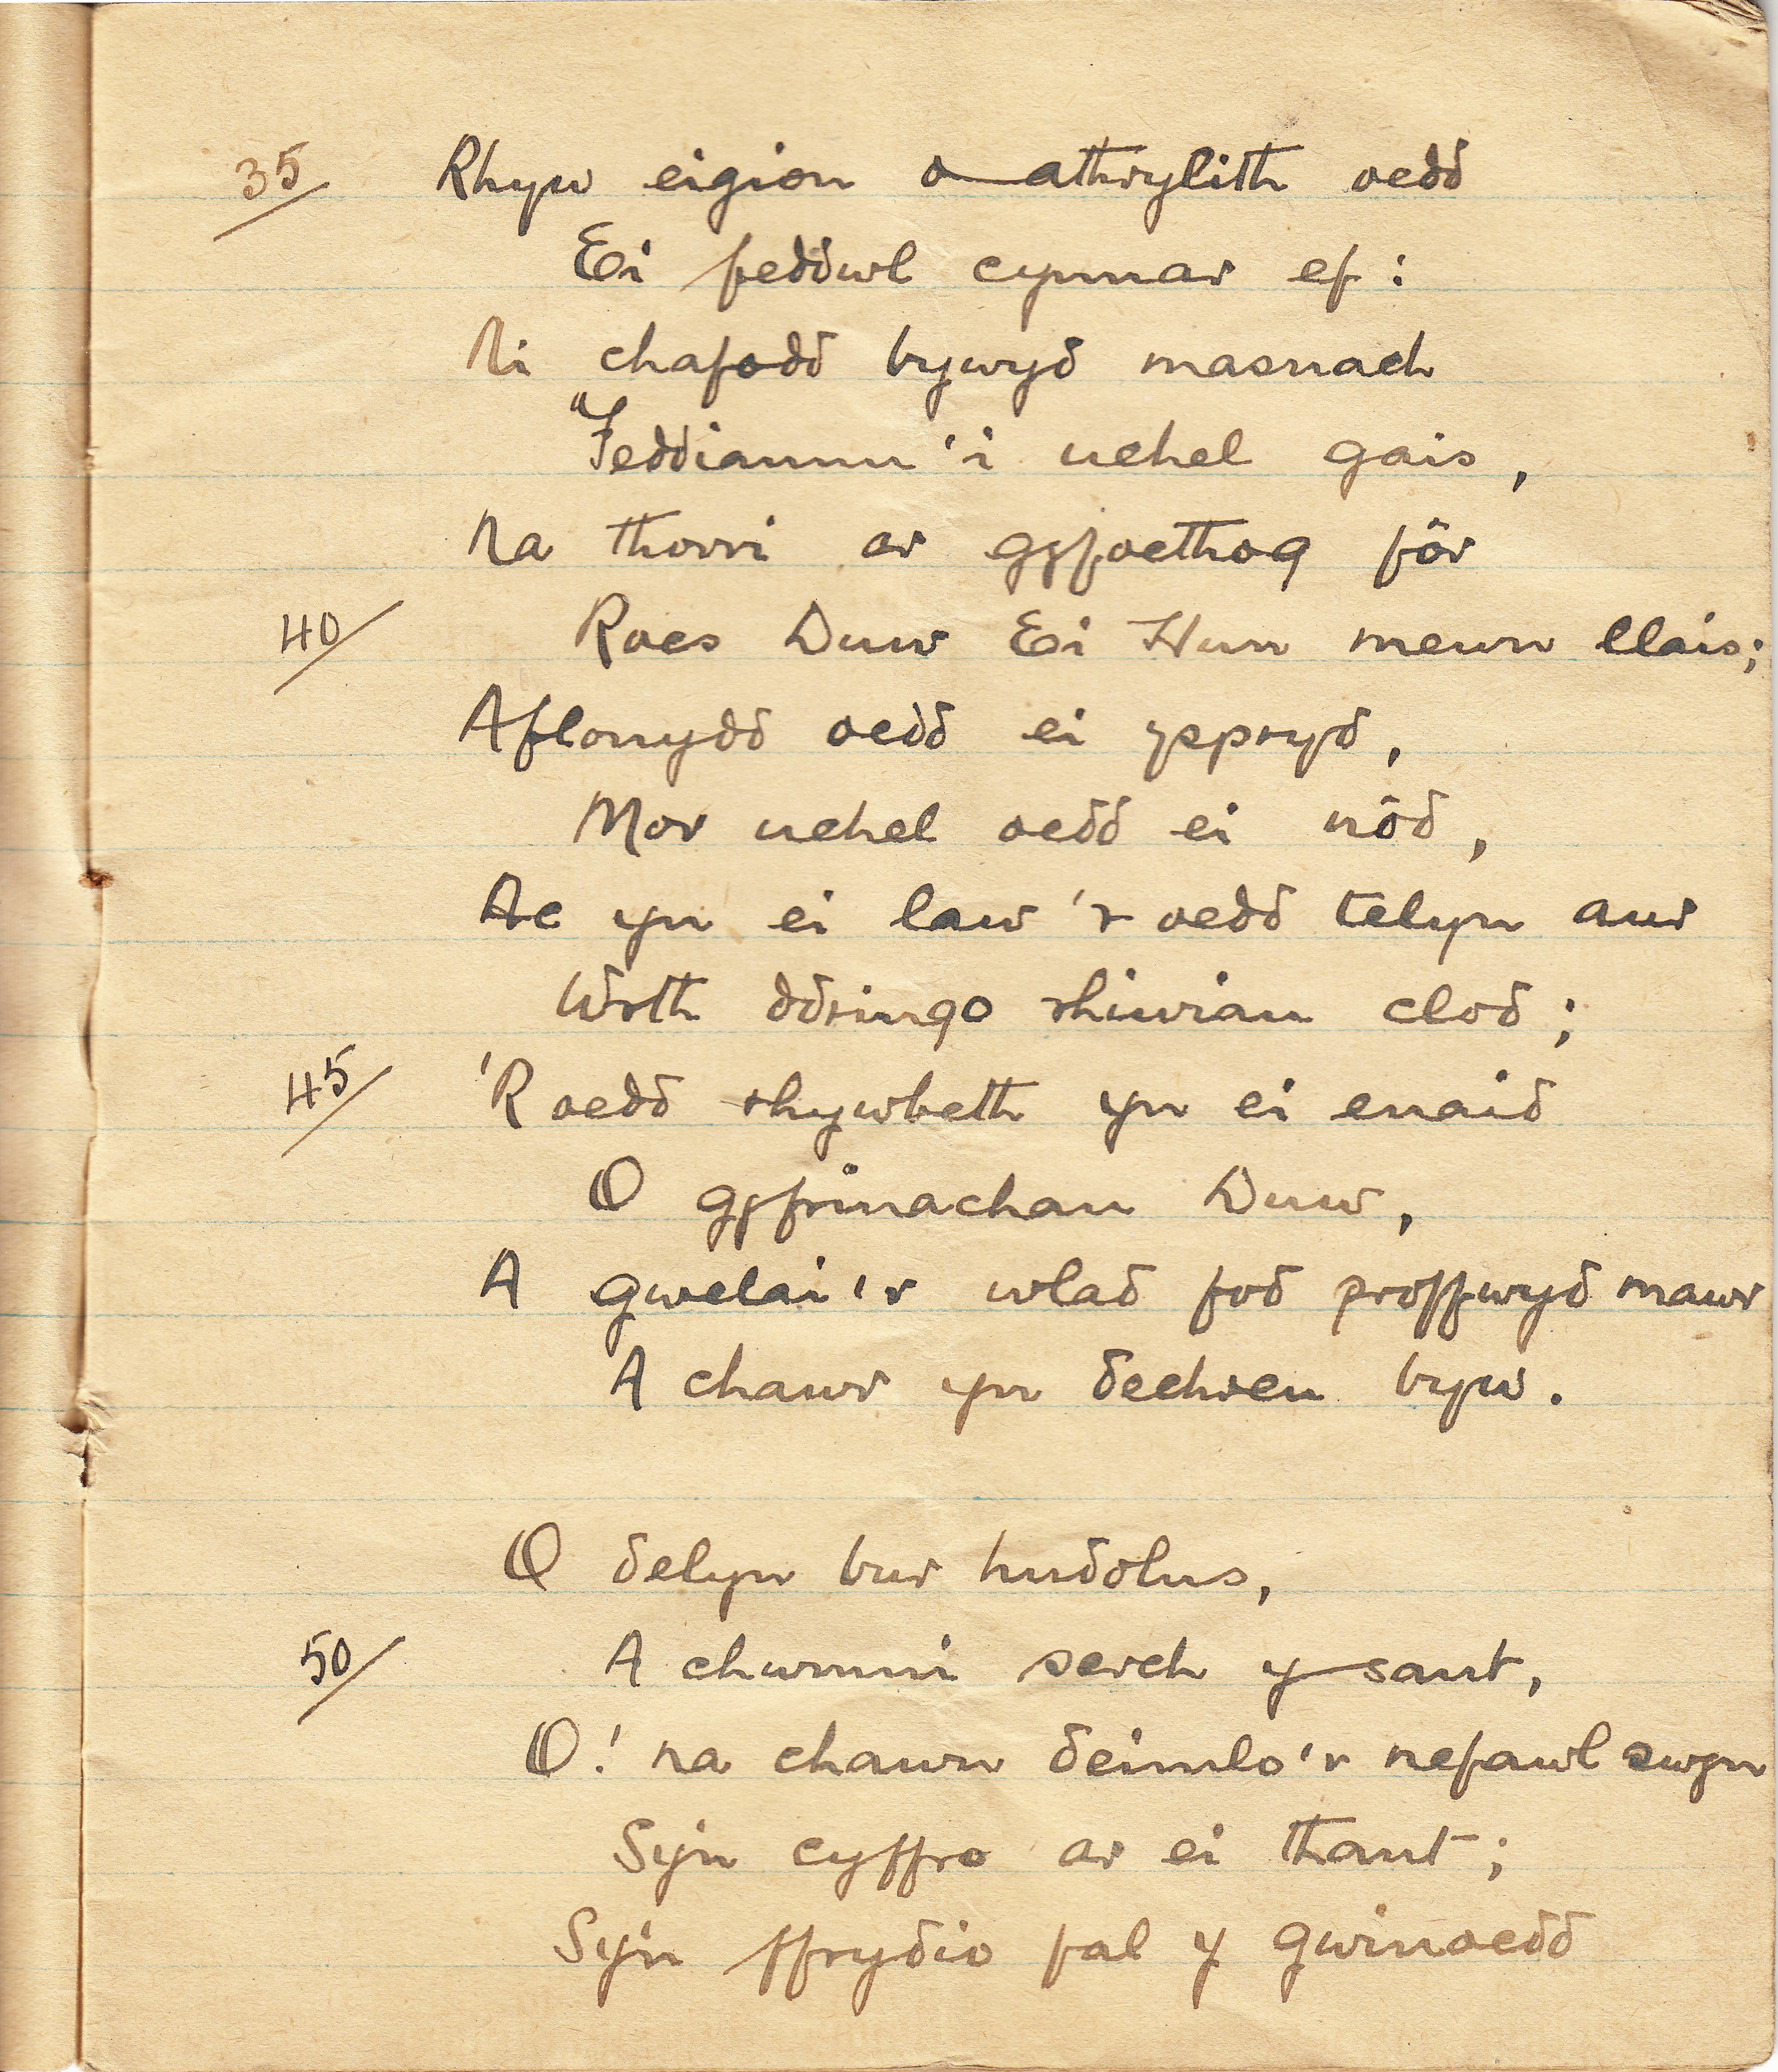 35/ Rhyw eigion o athrylith oedd
Ei feddwl cynnar ef:
Ni chafodd bywyd masnach
"Feddiannu'i uchel gais,
Na thorri ar gyfoethog fôr
40/ Roes Duw Ei Hun mewn llais;
Aflonydd oedd ei yspryd,
Mor uchel oedd ei nôd,
Ac yn ei law 'r oedd telyn aur
Wrth ddringo rhiwiau clod;
45/ 'R oedd rhywbeth yn ei enaid
O gyfrinachau Duw,
A gwelai'r wlad fod proffwyd mawr
A chawr yn dechreu byw.
O delyn bur hudolus,
50/ A chwmni serch y sant,
O! na chawn deimlo'r nefawl swyn
Sy'n cyffro ar ei thant;
Sy'n ffrydio fal y gwinoedd